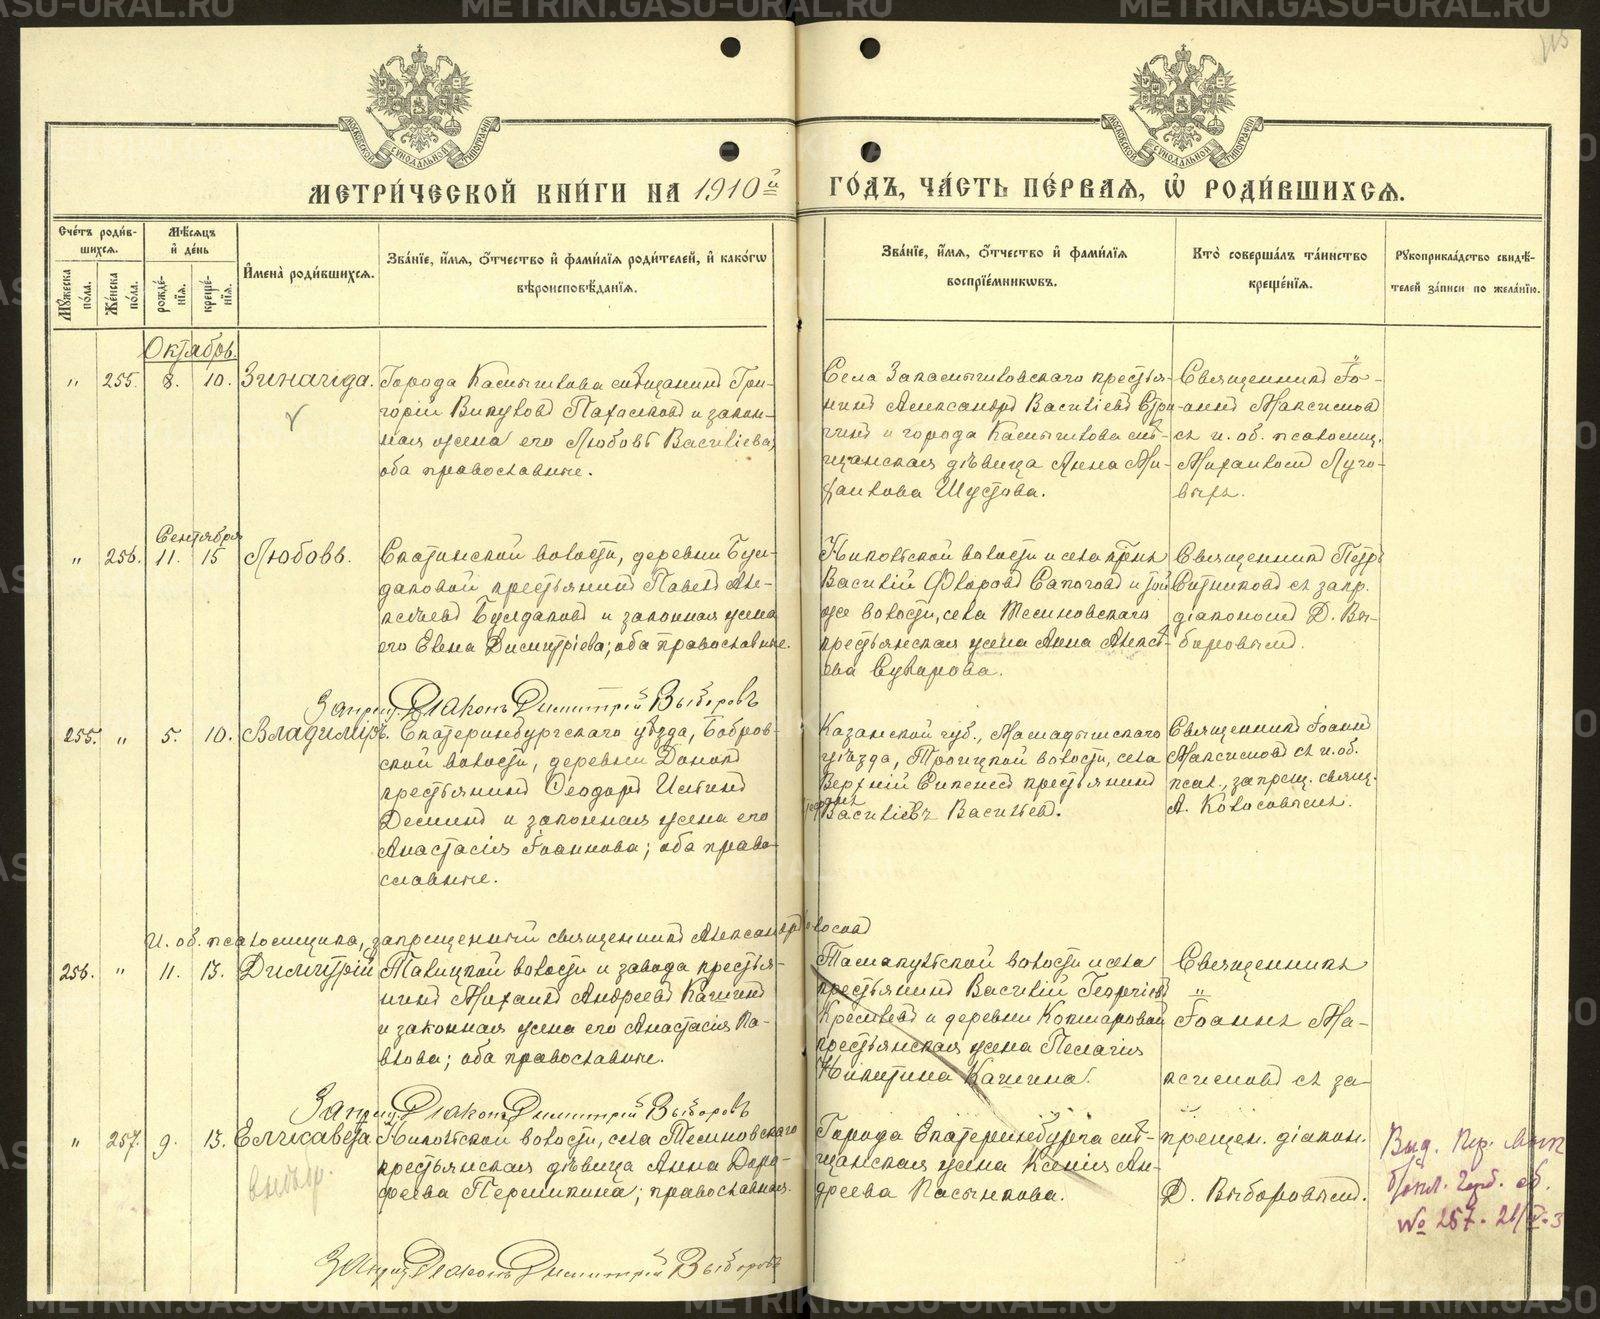 METRIKI.GASU-URAL.RU
МЕТРИ́ЧЕСКОЙ КНИ́ГИ НА 1910й ГО́ДЪ, ЧА́СТЬ ПЕ́РВАЯ, Ѡ҆ РОДИ́ВШИХСѦ.
МОСКОВСКОЙ СИНОДАЛЬНОЙ ТИПОГРАФІИ
МОСКОВСКОЙ СИНОДАЛЬНОЙ ТИПОГРАФІИ
115
Сче́тъ роди́вшихсѧ.
Мꙋ́жеска по́ла.
Же́нска по́ла.
Мѣ́сѧцъ и҆ де́нь
рожде́нїѧ.
креще́нїѧ.
И҆мена̀ роди́вшихсѧ.
Зва́нїе, и҆́мѧ, ѻ҆́тчество и҆ фами́лїѧ роди́телей, и҆ како́гѡ
вѣроисповѣ́данїѧ.
Зва́нїе, и҆́мѧ, ѻ҆́тчество и҆ фами́лїѧ
воспрїе́мникѡвъ.
Кто̀ соверша́лъ та́инство
креще́нїѧ.
Рꙋкоприкла́дство свидѣ́-
телей за́писи по жела́нїю.
Октябрь.
" 255. 8. 10. Зинаида.
Города Камышлова мѣщанинъ Гри-
горій Викуловъ Пахомовъ и закон-
ная жена его Любовь Васильева,
оба православные.
Села Закамышловскаго крестья-
нинъ Александръ Васильевъ
и города Камышлова мѣ-
щанская дѣвица Анна Ми-
хаилова Шустова.
Священникъ Іо-
аннъ Максимов
съ и. об. псаломщ.
Михаиломъ Луго-
выхъ.
Сентября
" 256. 11. 15 Любовь.
Скатинской волости, деревни Бул-
даковой крестьянинъ Павелъ Але-
ксѣевъ Булдаковъ и законная жена
его Елена Димитріева; оба православные.
Никольской волости и села крест.
Василій Фваровъ Сапоговъ и той
же волости, села Темновскаго
крестьянская жена Анна Алексѣ-
ева Суварова.
Священникъ Петръ
Сотниковъ съ запр.
діакономъ Д. Вы-
боровымъ.
Запрещ. Діаконъ Димитрій Выборовъ
255. " 5. 10. Владиміръ.
Екатеринбургскаго уѣзда, Бобров-
ской волости, деревни
крестьянинъ Ѳеодоръ
Деминъ и законная жена его
Анастасія Іоаннова; оба право-
славные.
Казанской губ., Мамадышскаго
уѣзда, Троицкой волости, села
Верхній крестьянинъ
Васильевъ Васильев.
Священникъ Іоаннъ
Максимовъ съ и. об.
псал., запрещ. свящ.
А. Колосовымъ.
И. об. псаломщика, запрещенный священникъ Александръ Колосовъ
256. " 11. 13. Димитрій
Талицкой волости и завода крестья-
нинъ Михаилъ Андреевъ Кашинъ
и законная жена его Анастасія Па-
влова; оба православные.
волости и села
крестьянинъ Василій Георгіевъ
и деревни Кокшаровой
крестьянская жена Пелагія
Никитина Кашина.
Священникъ
Іоаннъ Ма-
ксимовъ съ за-
Запрещ. Діаконъ Димитрій Выборовъ
" 257. 9. 13. Елисавета
выбыр.
Никольской волости, села Темновскаго
крестьянская дѣвица Анна Доро-
феева Перешкина; православная.
Города Екатеринбурга мѣ-
щанская жена Ксенія Ан-
дреева Пастухова.
прещен. діакон.
Д. Выборовымъ.
Выд. Пер. вып
№ 257. 26/IV-3
Запрещ. Діаконъ Димитрій Выборовъ
METRIKI.GASU-URAL.RU